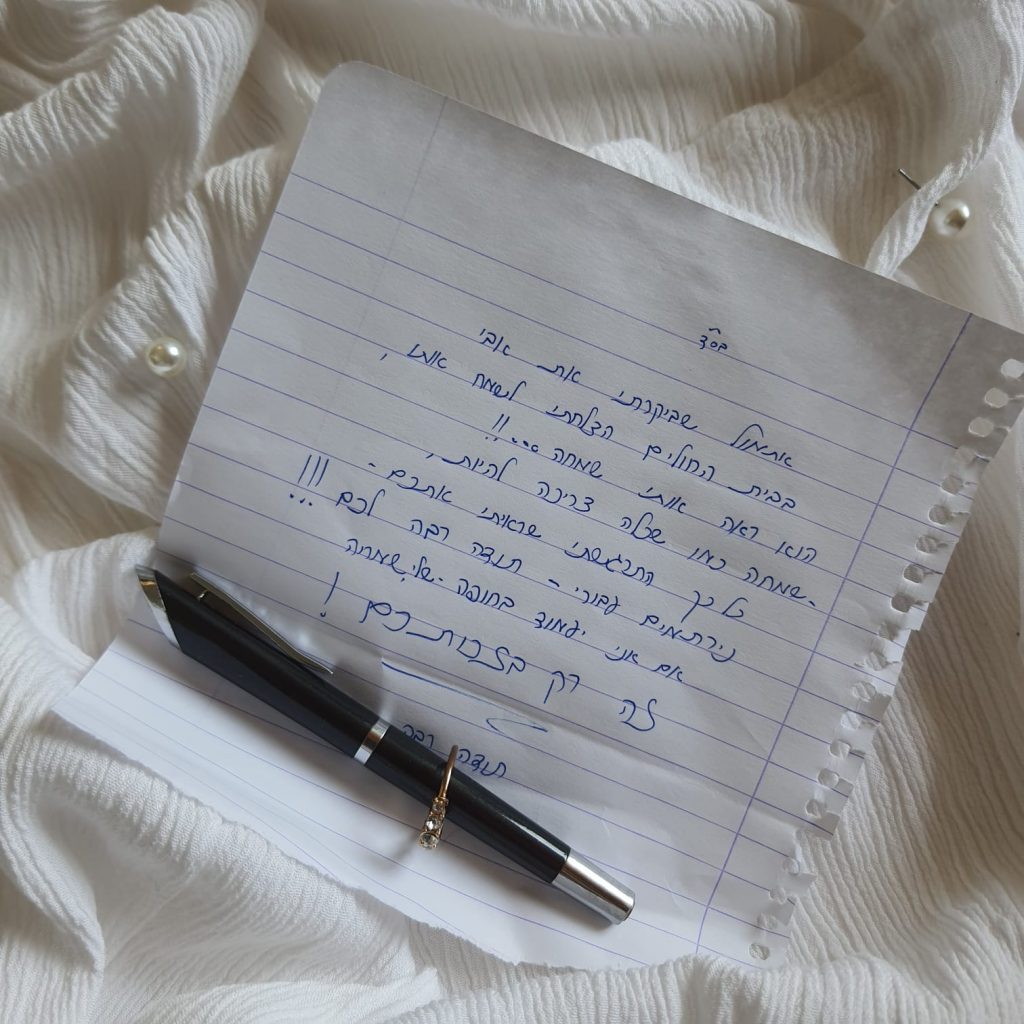 בסד
אתמול שביקרתי את אבי
בבית החולים הצלחתי לשמח אותו,
הוא ראה אותי שמחה...!!
שמחה כמו שכלה צריכה להיות,
כל כך התרגשתי שראיתי אתכם -
נירתמים עבורי - תודה רבה לכם!!!
אם אבי יעמוד בחופה שלי,
זה רק בזכותכם!
תודה רבה